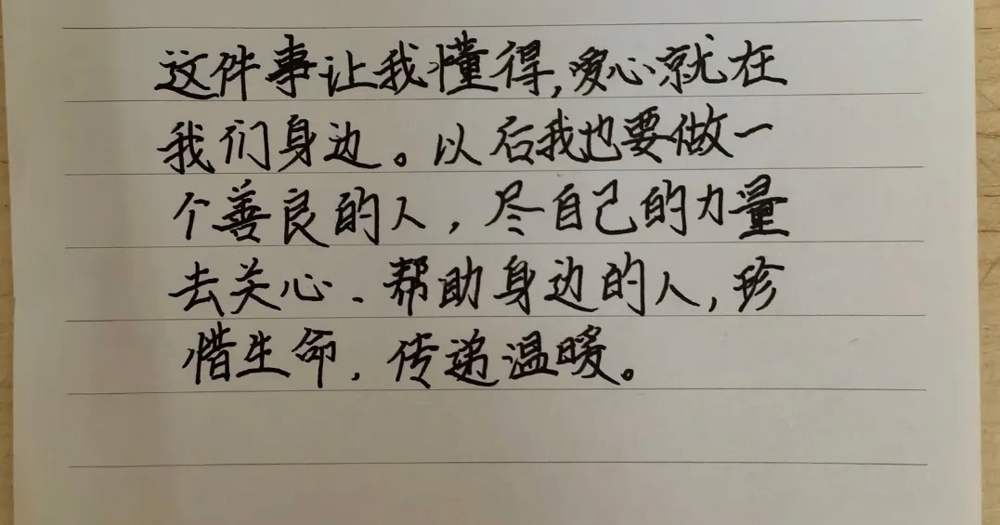 这件事让我懂得,爱心就在
我们身边。以后我也要做一
个善良的人，尽自己的力量
去关心、帮助身边的人,珍
惜生命，传递温暖。